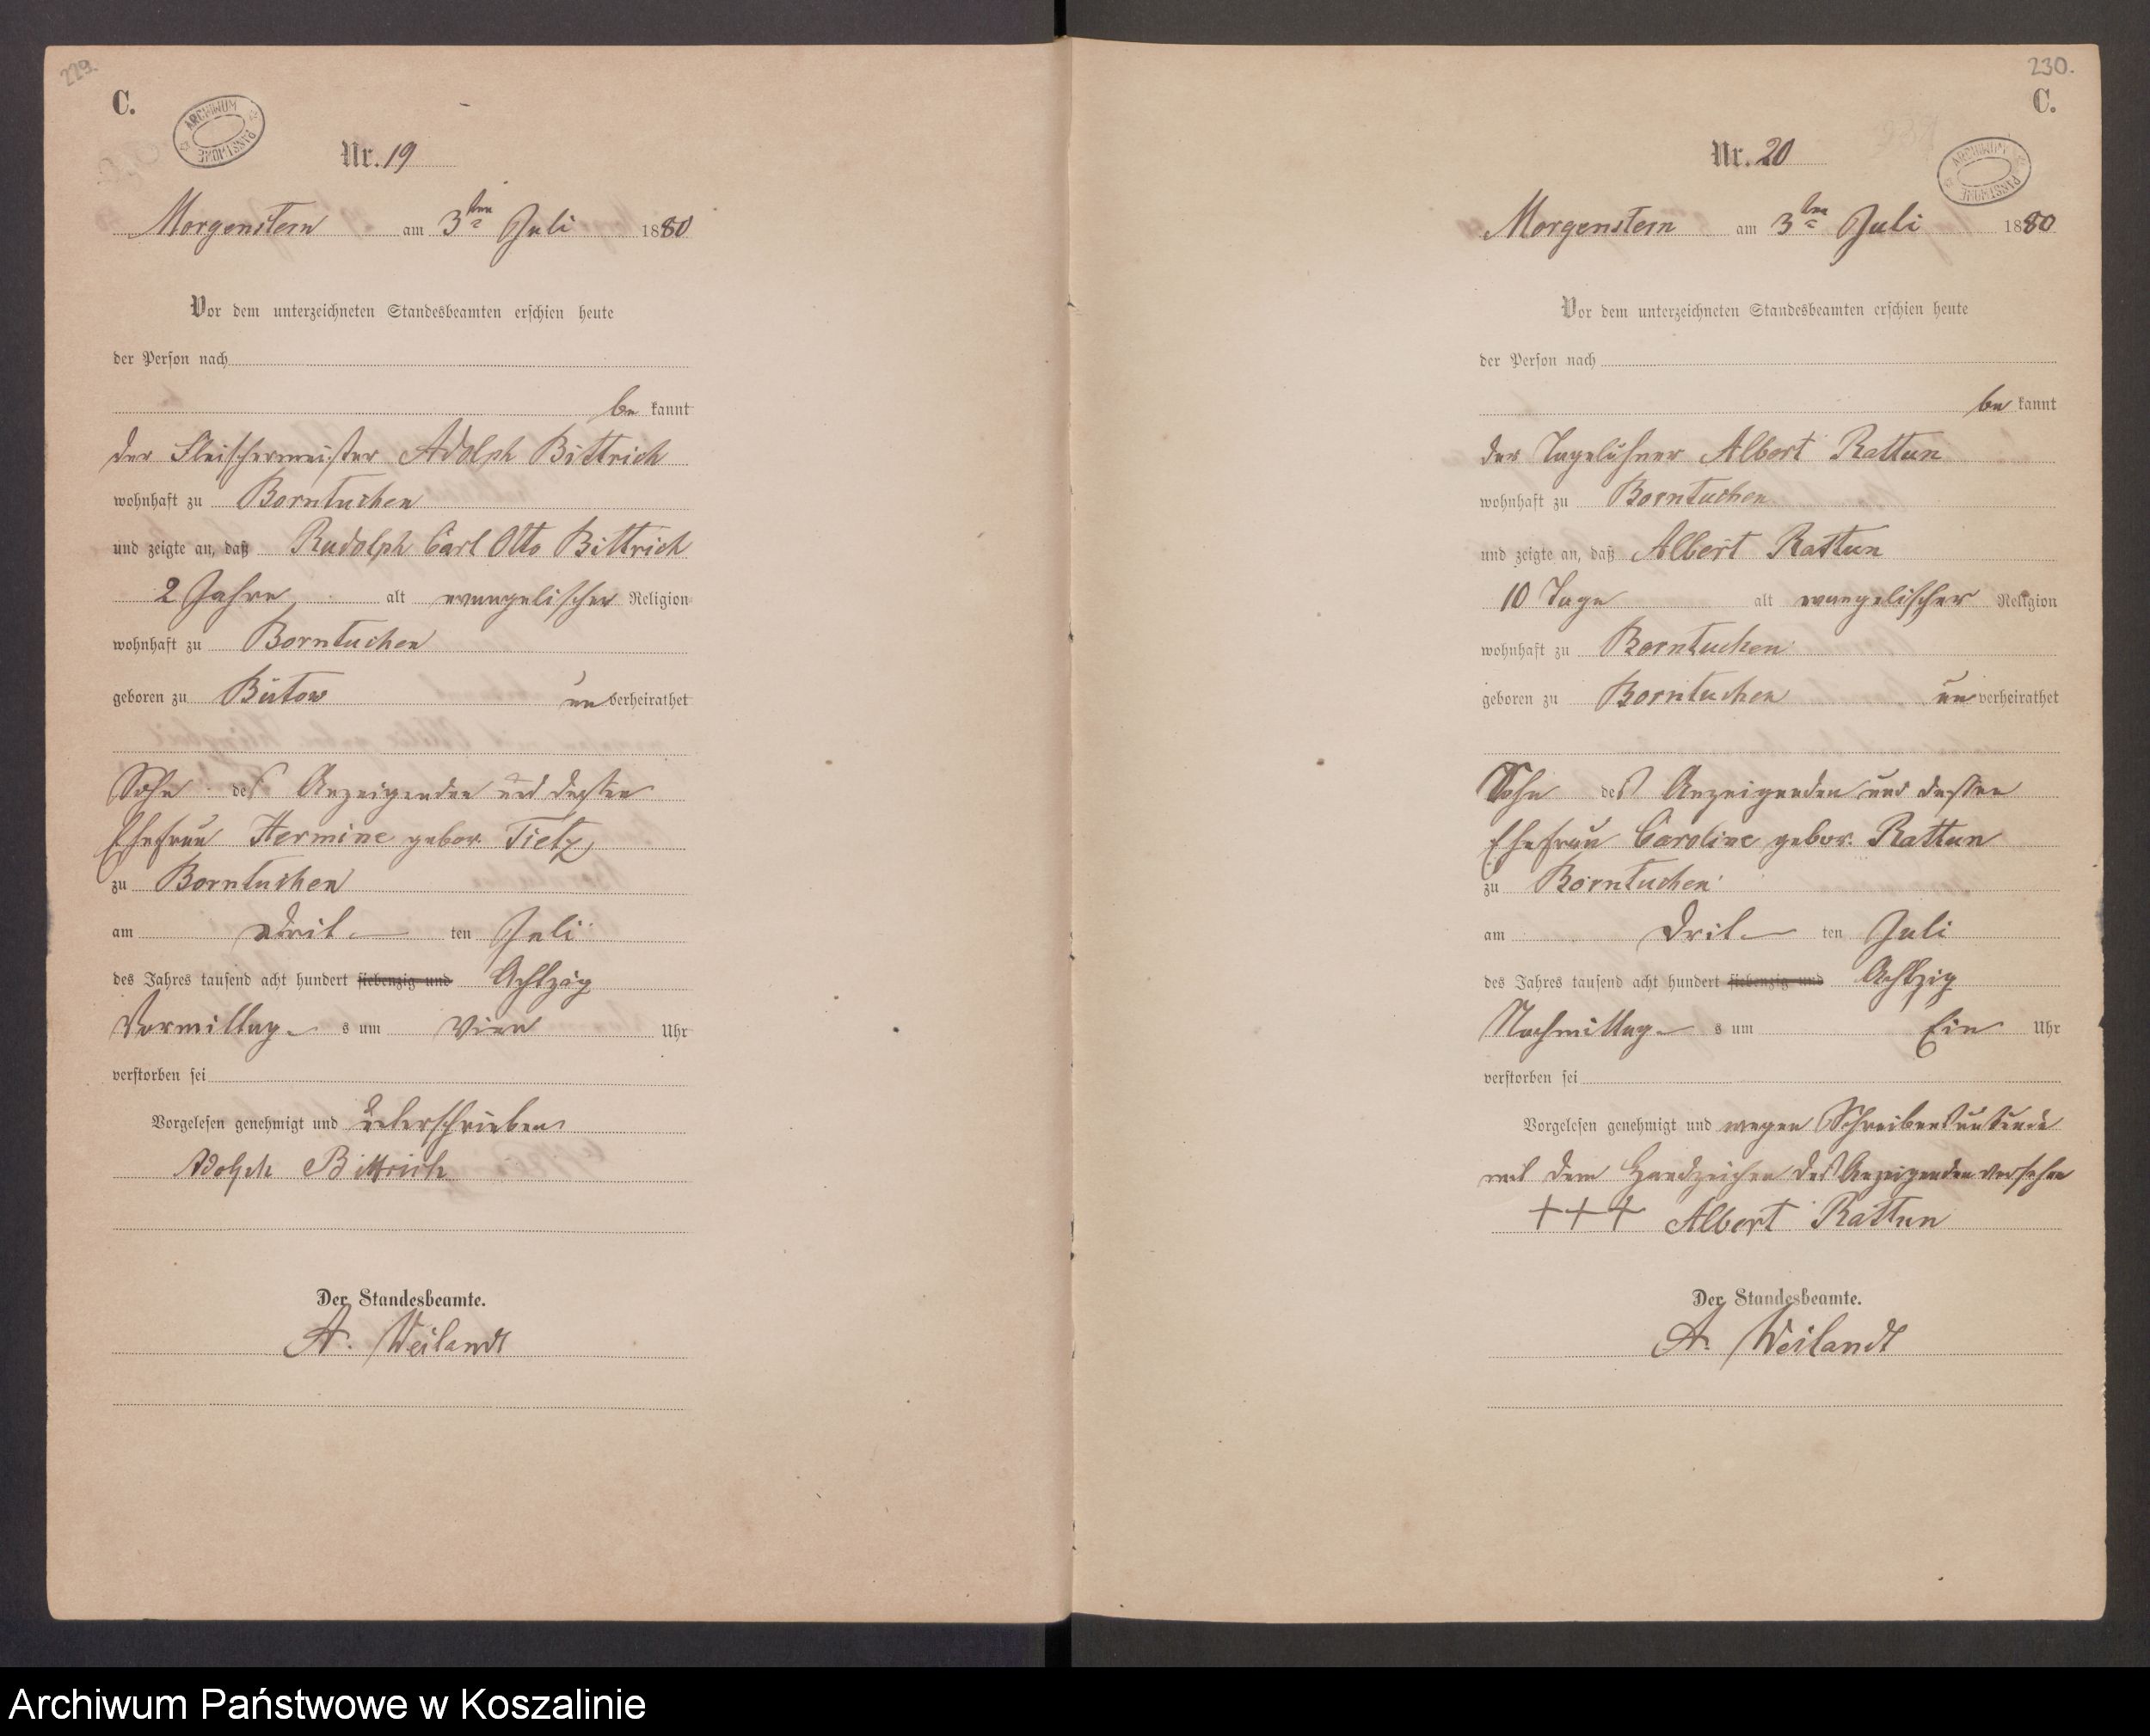 229.
C.
ARCHIWUM PAŃSTWOWE
Nr. 19
Morgenstern am 3ten Juli 1880
Vor dem unterzeichneten Standesbeamten erschien heute
der Person nach
be kannt
der Fleischermeister Adolph Bittrich
wohnhaft zu Borntuchen
und zeigte an, daß Rudolph Carl Otto Bittrich
2 Jahre alt evangelischer Religion
wohnhaft zu Borntuchen
geboren zu Bütow un verheirathet
Sohn des Anzeigenden und dessen
Ehefrau Hermine gebor. Tietz
zu Borntuchen
am Drit ten Juli
des Jahres tausend acht hundert siebenzig und Achtzig
Vormittag s um Vier Uhr
verstorben sei
Vorgelesen genehmigt und unterschrieben
Adolph Bittrich
Der Standesbeamte.
A. Weilandt
230.
C.
ARCHIWUM PAŃSTWOWE
Nr. 20
Morgenstern am 3ten Juli 1880
Vor dem unterzeichneten Standesbeamten erschien heute
der Person nach
be kannt
der Tagelöhner Albert Rattun
wohnhaft zu Borntuchen
und zeigte an, daß Albert Rattun
10 Tage alt evangelischer Religion
wohnhaft zu Borntuchen
geboren zu Borntuchen un verheirathet
Sohn des Anzeigenden und dessen
Ehefrau Caroline gebor. Rattun
zu Borntuchen
am Drit ten Juli
des Jahres tausend acht hundert siebenzig und Achtzig
Nachmittag s um Ein Uhr
verstorben sei
Vorgelesen genehmigt und wegen Schreibensunkunde
mit dem Handzeichen des Anzeigenden versehen
+++ Albert Rattun
Der Standesbeamte.
A. Weilandt
Archiwum Państwowe w Koszalinie